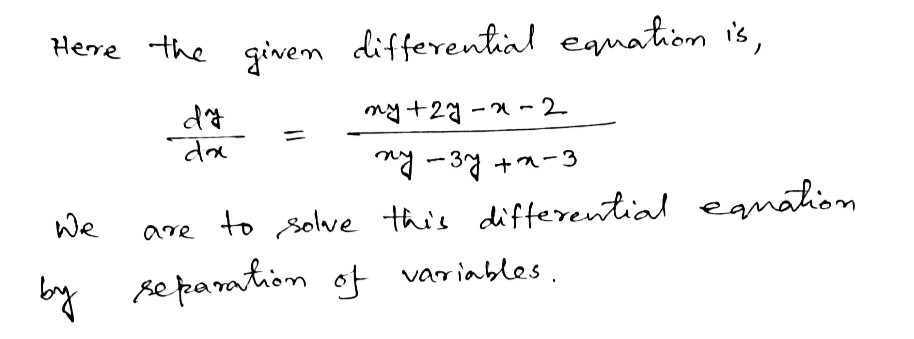 Here the given differential equation is,
dy/dx = (xy+2y-x-2)/(xy-3y+x-3)
We are to solve this differential equation
by separation of variables.